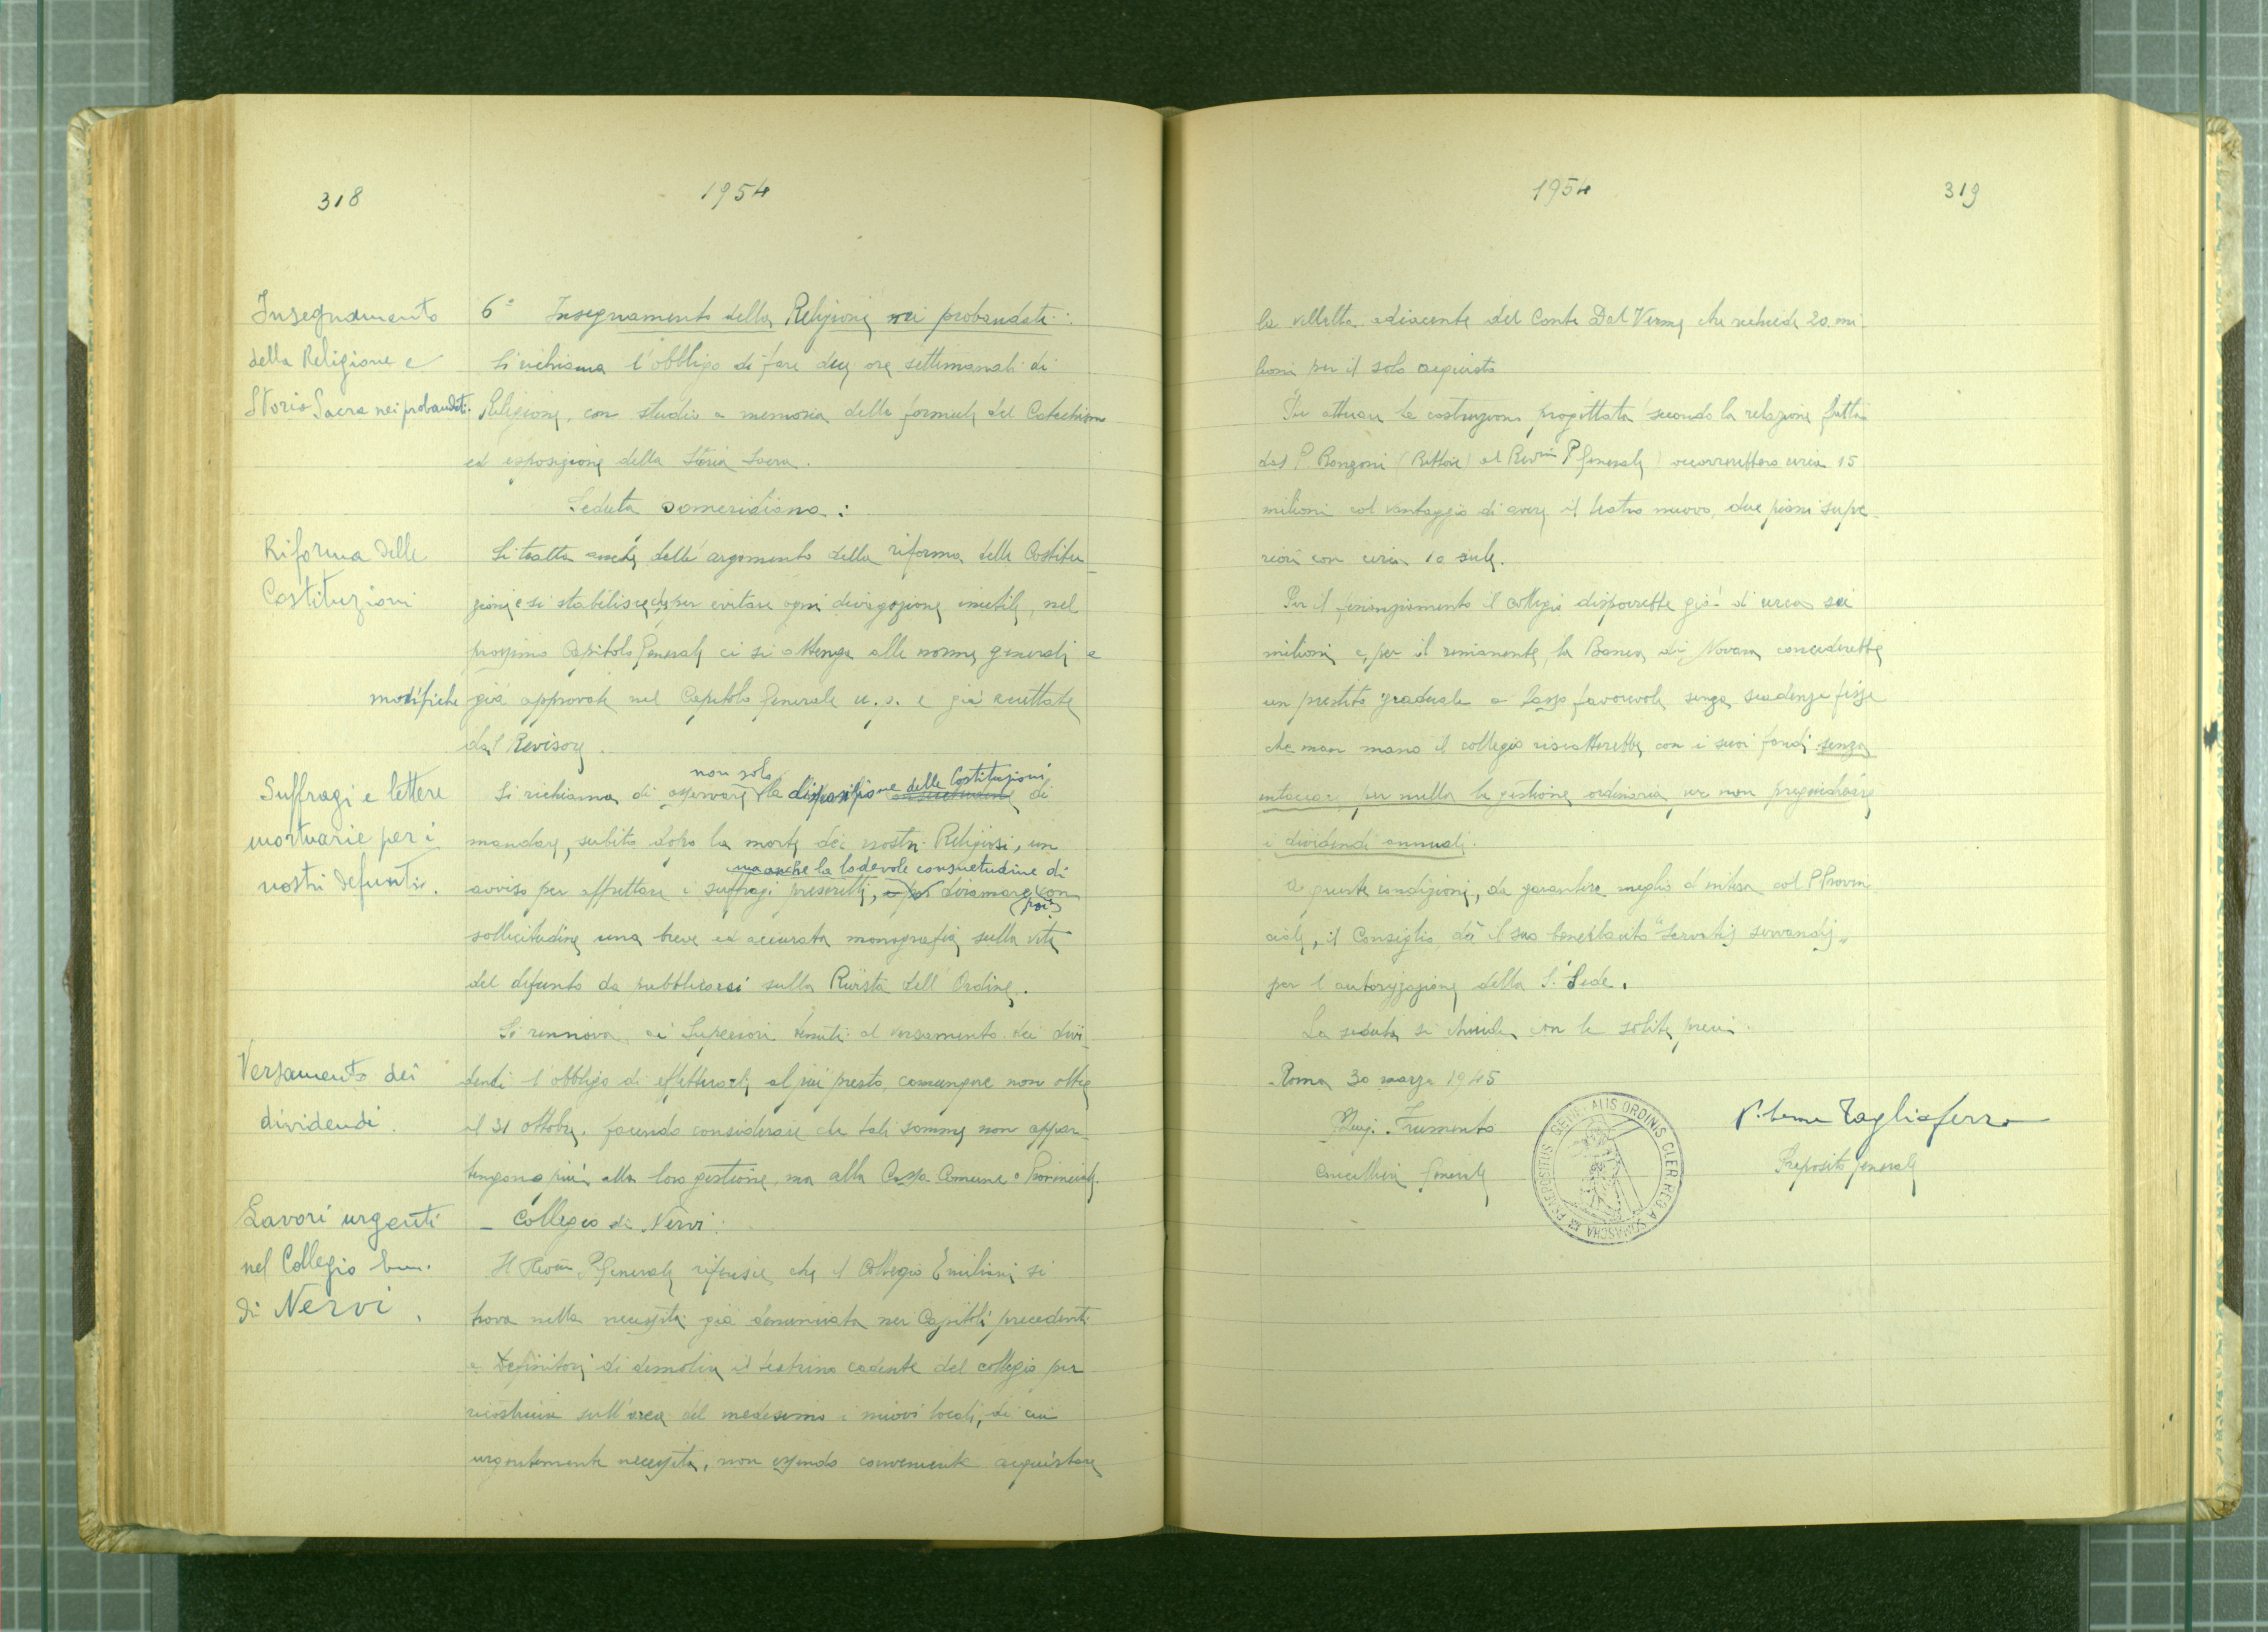 318
1954
Insegnamento
della Religione e
Storia Sacra nei probandati.
6° Insegnamento della Religione nei probandati:
Si richiama l'obbligo di fare due ore settimanali di
Religione, con studio a memoria delle formule del Catechismo
ed esposizione della Storia Sacra.
Seduta pomeridiana:
Riforma delle
Costituzioni
Si tratta anche dell'argomento della riforma delle Costitu-
zioni e si stabilisce che per evitare ogni divagazione inutile, nel
prossimo Capitolo Generale ci si attenga alle norme generali e
modifiche già approvate nel Capitolo Generale u. s. e già accettate
dal Revisore.
Suffragi e lettere
mortuarie per i
nostri defunti.
non solo
Si richiama di osservare la disposizione delle Costituzioni di
mandare, subito dopo la morte dei nostri Religiosi, un
ma anche la lodevole consuetudine di
avviso per affrettare i suffragi prescritti, e poi diramare con
(poi)
sollecitudine una breve ed accurata monografia sulla vita
del defunto da pubblicarsi sulla Rivista dell'Ordine.
Versamento dei
dividendi.
Si rinnova ai Superiori tenuti al versamento dei divi-
dendi l'obbligo di effettuarli al più presto, comunque non oltre
il 31 ottobre, facendo considerare che tali somme non appar-
tengono più alla loro gestione, ma alla Cassa Comune o Provinciale.
Lavori urgenti
nel Collegio Em.
di Nervi.
- Collegio di Nervi:
Il Rev.mo P. Generale riferisce che il Collegio Emiliani si
trova nella necessità già denunciata nei Capitoli precedenti
e Definitori di demolire il teatrino cadente del collegio per
ricostruire sull'area del medesimo i nuovi locali, di cui
urgentemente necessita, non essendo conveniente acquistare
1954
319
la villetta adiacente del Conte Dal Verme che richiede 20 mi-
lioni per il solo acquisto
Per attuare la costruzione progettata (secondo la relazione fatta
dal P. Ronzoni (Rettore) al Rev.mo P. Generale) occorrerebbero circa 15
milioni col vantaggio di avere il teatro nuovo, due piani supe-
riori con circa 10 aule.
Per il finanziamento il collegio disporrebbe già di circa sei
milioni e, per il rimanente, la Banca di Novara concederebbe
un prestito graduale a tasso favorevole senza scadenze fisse
che man mano il collegio riscatterebbe con i suoi fondi senza
intaccare per nulla la gestione ordinaria per non pregiudicare
i dividendi annuali.
A queste condizioni, da garantire meglio d'intesa col P. Provin-
ciale, il Consiglio dà il suo beneplacito "servatis servandis"
per l'autorizzazione della S. Sede.
La seduta si chiude con le solite preci.
Roma 30 marzo 1945
P. Luigi Frumento
Cancelliere Generale
PRAEPOSITUS GENERALIS ORDINIS CLER. REG. A SOMASCHA
Tagliaferro
Preposito Generale